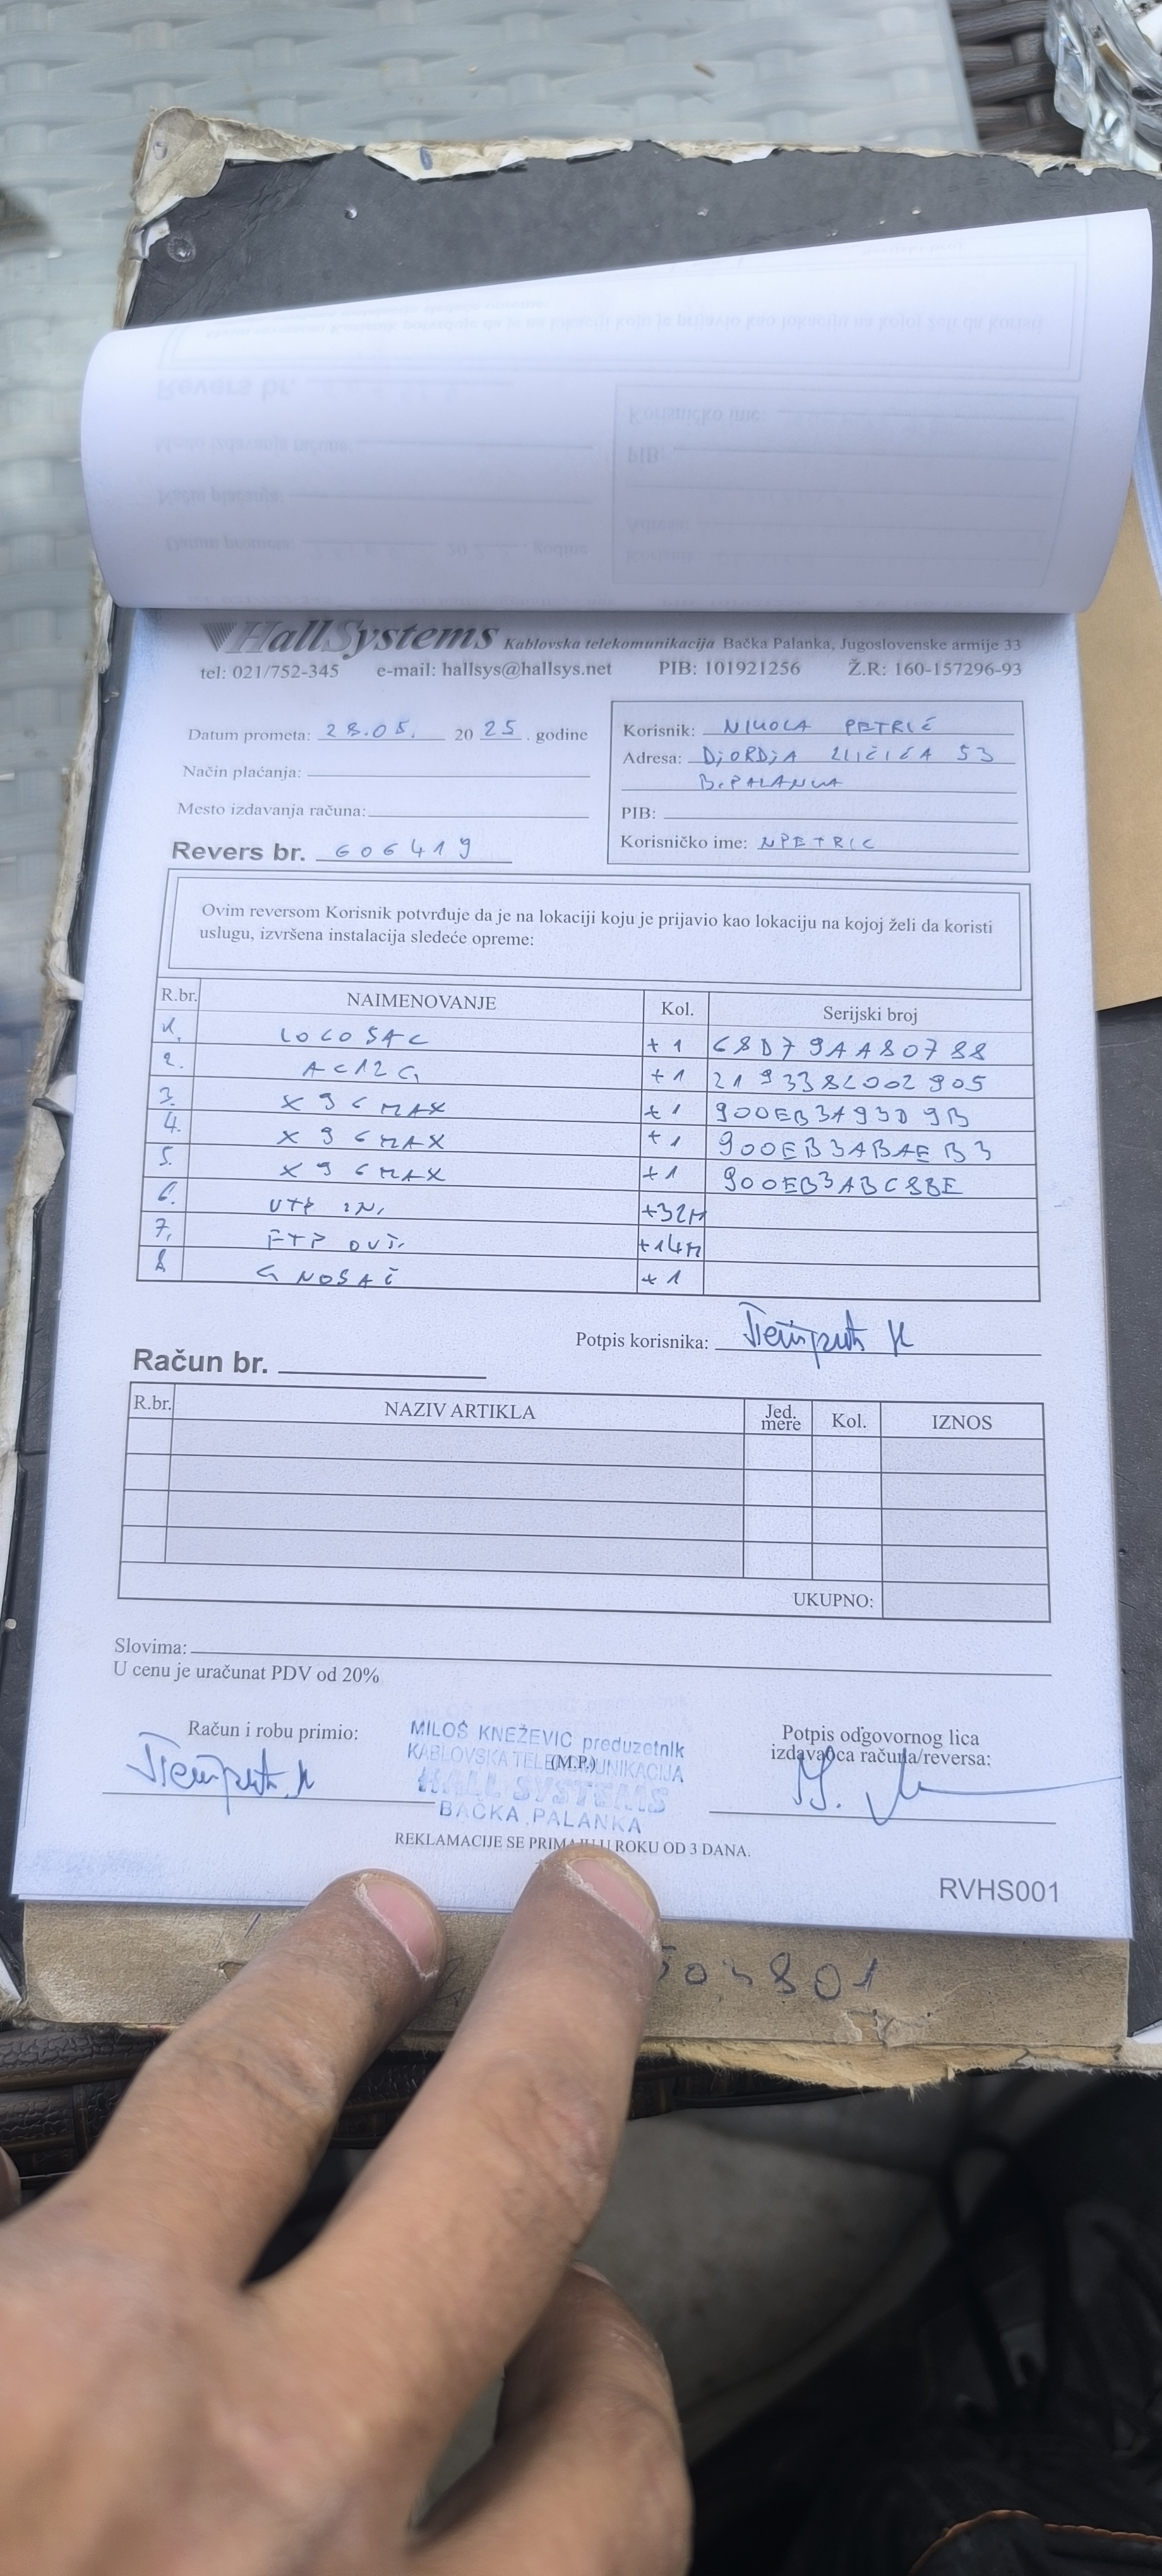 HallSystems Kablovska telekomunikacija Bačka Palanka, Jugoslovenske armije 33
tel: 021/752-345 e-mail: hallsys@hallsys.net PIB: 101921256 Ž.R: 160-157296-93
Datum prometa: 28.05. 20 25 . godine
Način plaćanja:
Mesto izdavanja računa:
Revers br. 606419
Korisnik: NIKOLA PETRIĆ
Adresa: DjORDjA ZLIČIĆA 53
B.PALANKA
PIB:
Korisničko ime: NPETRIC
Ovim reversom Korisnik potvrđuje da je na lokaciji koju je prijavio kao lokaciju na kojoj želi da koristi
uslugu, izvršena instalacija sledeće opreme:
R.br. NAIMENOVANJE Kol. Serijski broj
1. LOCO5AC +1 68D79AA80788
2. AC12G +1 2193382002905
3. X96MAX +1 900EB3A93D9B
4. X96MAX +1 900EB3ABAEB3
5. X96MAX +1 900EB3ABC8BE
6. UTP UN. +32M
7. FTP +14M
8 G NOSAČ +1
Potpis korisnika:
Račun br.
R.br. NAZIV ARTIKLA Jed. mere Kol. IZNOS
UKUPNO:
Slovima:
U cenu je uračunat PDV od 20%
Račun i robu primio:
MILOŠ KNEŽEVIĆ preduzetnik
KABLOVSKA TELEKOMUNIKACIJA
(M.P.)
HALL SYSTEMS
BAČKA PALANKA
Potpis odgovornog lica
izdavaoca računa/reversa:
REKLAMACIJE SE PRIMAJU U ROKU OD 3 DANA.
RVHS001